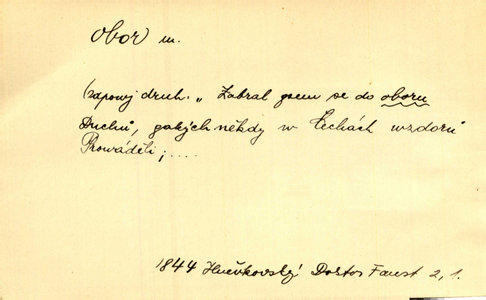 Obor m.
(zápowěj druh. „Zabral gsem se do oboru
Duchů, gakých někdy w Čechách wzdorů
Prowáděli; ....
1844 Hněvkovský Doktor Faust 2, 1.